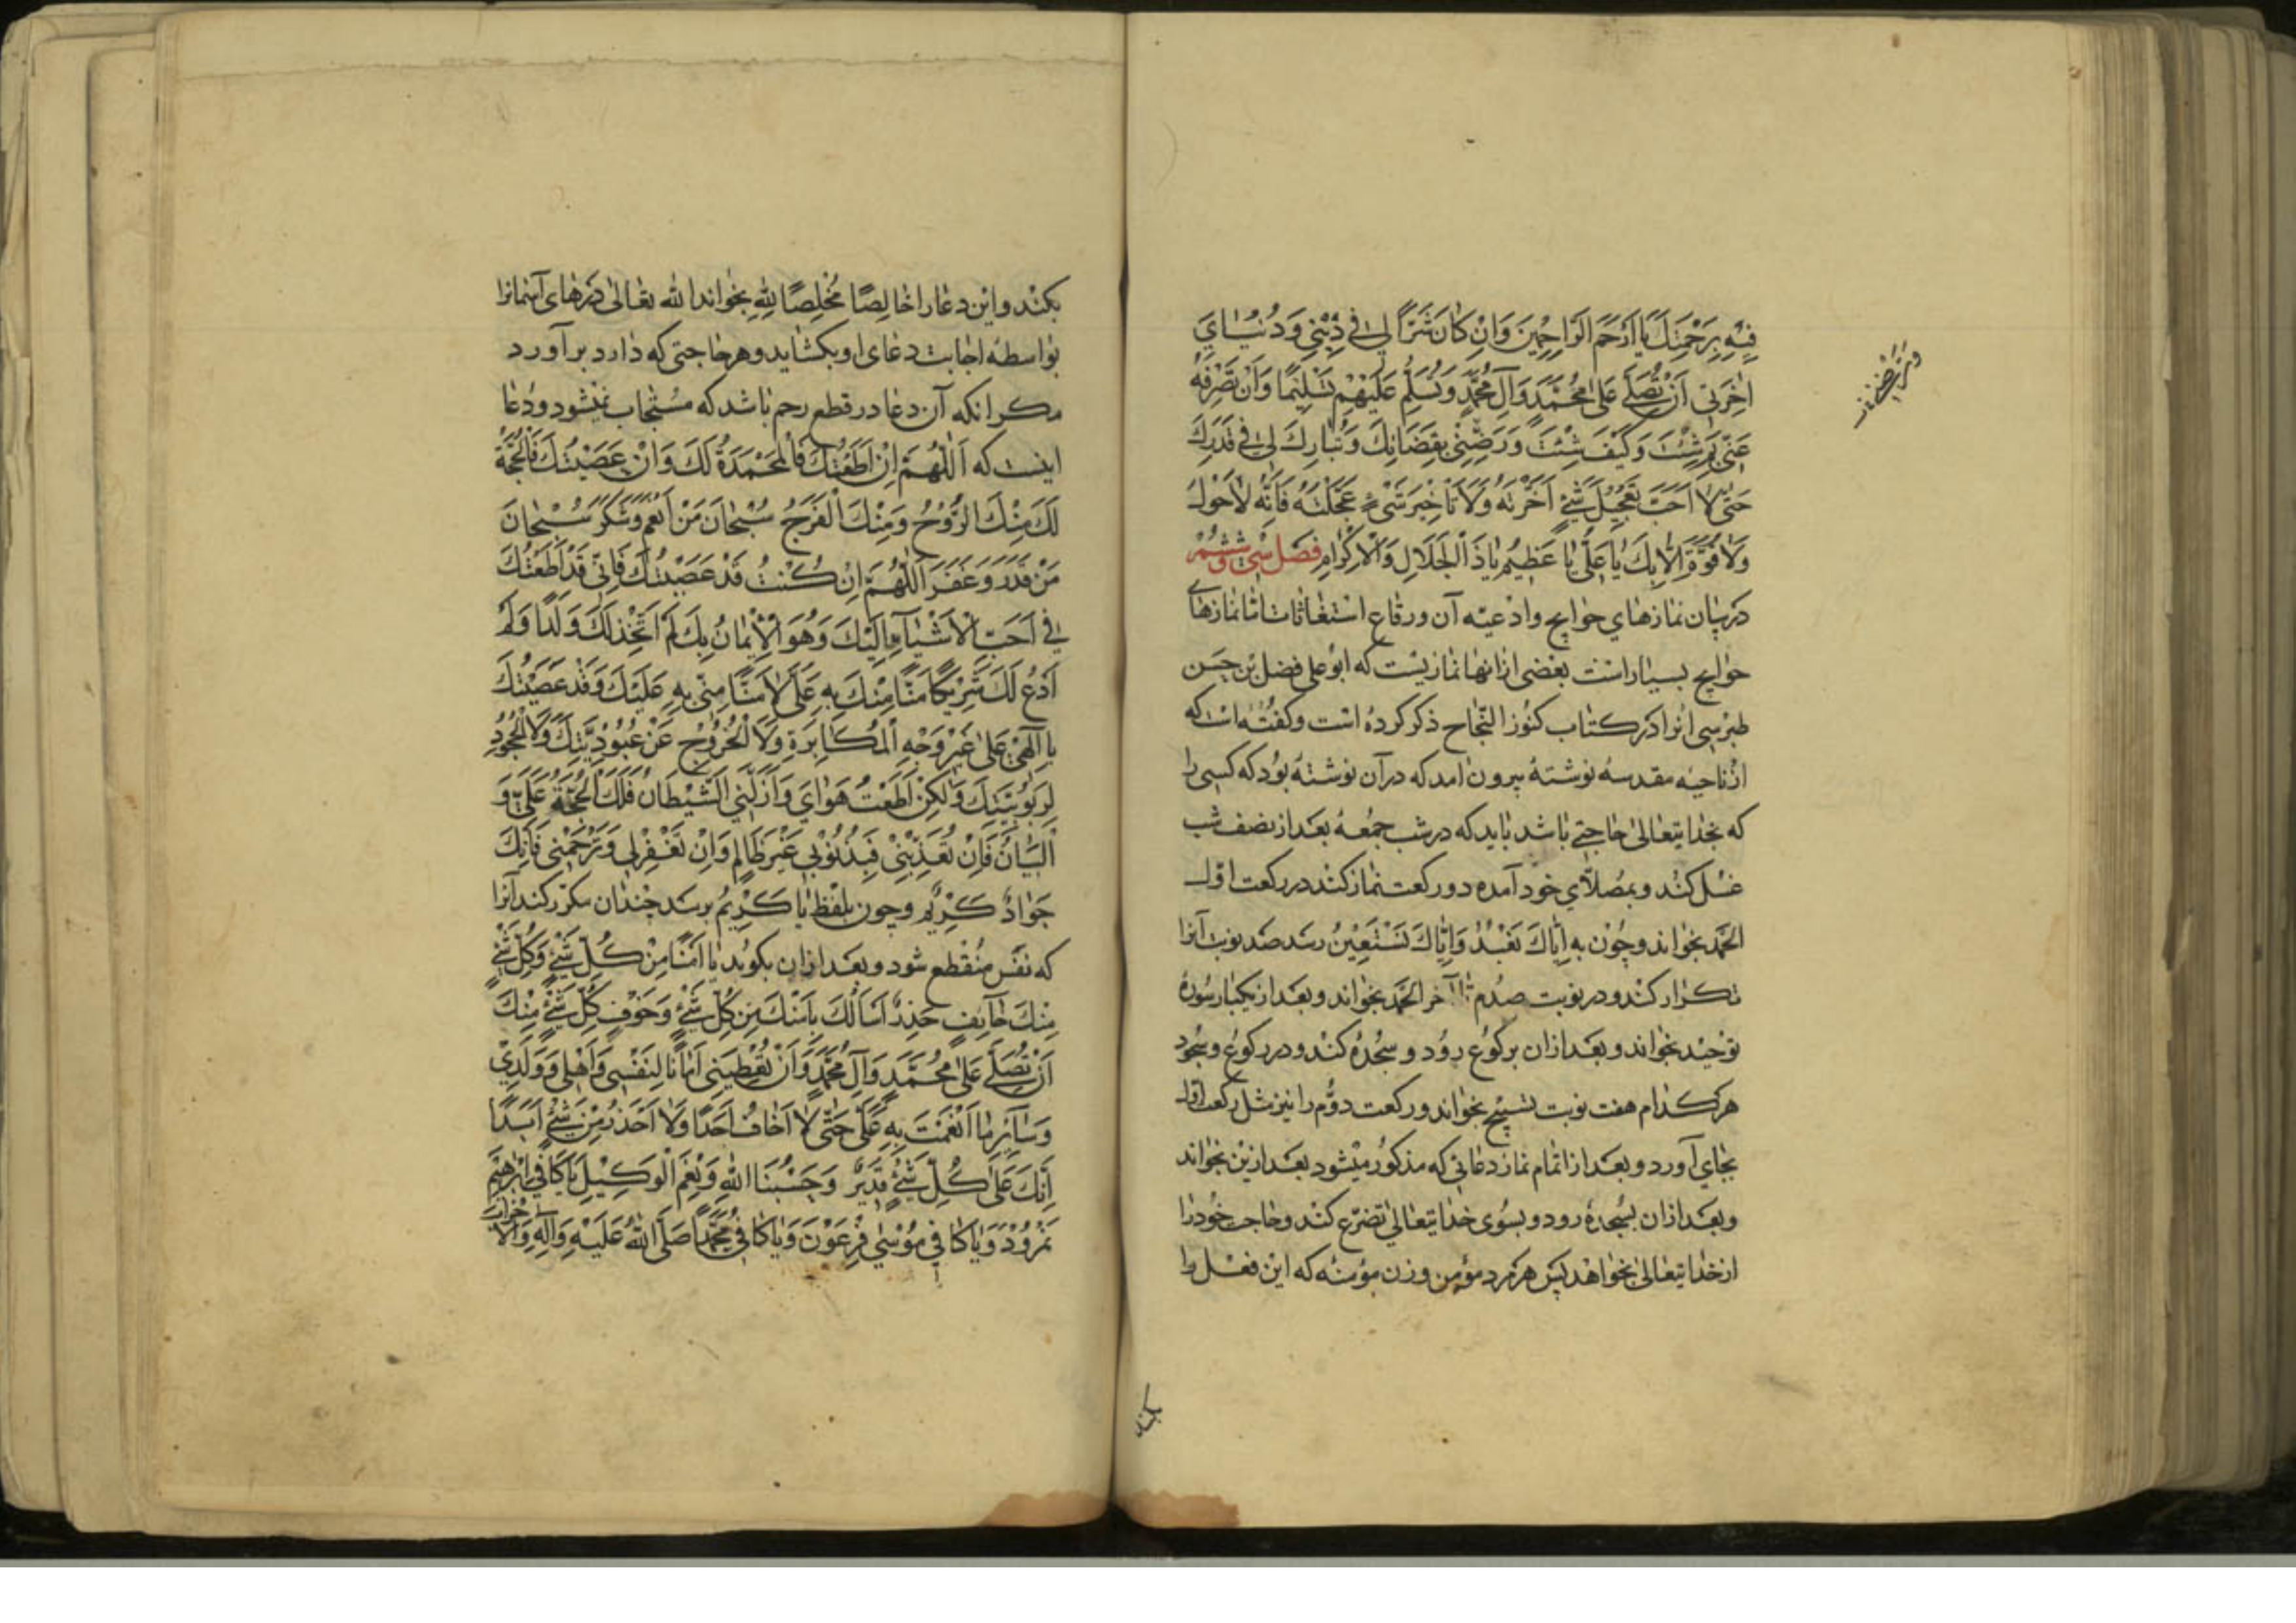 فِیهِ بِرَحْمَتِكَ یَا اَرْحَمَ الرَّاحِمِینَ وَاِنْ كَانَ شَرًّا لِی فِی دِینِی وَدُنْیَایَ
اٰخِرَتِی اَنْ تُصَلِّیَ عَلٰی مُحَمَّدٍ وَآلِ مُحَمَّدٍ وَتُسَلِّمَ عَلَیْهِمْ تَسْلِیمًا وَاَنْ تَصْرِفَهُ
عَنِّی بِمَ شِئْتَ وَكَیْفَ شِئْتَ وَرَضِّنِی بِقَضَائِكَ وَتُبَارِكَ لِی فِی قَدَرِكَ
حَتّٰی لَا اُحِبَّ تَعْجِیلَ شَیْءٍ اَخَّرْتَهُ وَلَا تَاْخِیرَ شَیْءٍ عَجَّلْتَهُ فَاِنَّهُ لَا حَوْلَ
وَلَا قُوَّةَ اِلَّا بِكَ یَا عَلِیُّ یَا عَظِیمُ یَا ذَا الْجَلَالِ وَالْاِكْرَامِ فصل سی و ششم
در بیان نمازهای حوایج وادعیه آن ورقاع استغاثات اما نمازهای
حوایج بسیار است بعضی از انها نمازیست که ابو علی فضل بن حسن
طبرسی انرا در کتاب کنوز النجاح ذکر کرده است وکفته است که
از ناحیه مقدسه نوشتهٔ بیرون امد که در آن نوشته بود که کسی را
که بخدایتعالی حاجتی باشد باید که در شب جمعه بعد از نصف شب
غسل کند وبمصلّای خود آمده دو رکعت نماز کند در رکعت اول
الحمد بخواند وچون به اِیَّاكَ نَعْبُدُ وَاِیَّاكَ نَسْتَعِینُ رسد صد نوبت آنرا
تکرار کند ودر نوبت صدم تا آخر الحمد بخواند وبعد از یکبار سورهٔ
توحید بخواند وبعد از ان برکوع رود و سجده کند ودر رکوع وسجود
هر کدام هفت نوبت تسبیح بخواند ورکعت دوّم را نیز مثل رکعت اول
بجای آورد وبعد از اتمام نماز دعائی که مذکور میشود بعد ازین بخواند
وبعد ازان بسجده رود وبسوی خدایتعالی تضرّع کند وحاجت خود را
از خدایتعالی بخواهد پس هر مرد مؤمن وزن مؤمنه که این فعل را
بکند
بکند واین دعا را خالِصًا مُخْلِصًا لِلّٰهِ بخواند الله تعالی درهای آسمانرا
بواسطهٔ اجابت دعای او بکشاید وهر حاجتی که دارد برآورد
مکر انکه آن دعا در قطع رحم باشد که مستجاب نمیشود ودعا
اینست که اَللّٰهُمَّ اِنْ اَطَعْتُكَ فَالْمَحْمَدَةُ لَكَ وَاِنْ عَصَیْتُكَ فَالْحُجَّةُ
لَكَ مِنْكَ الرَّوْحُ وَمِنْكَ الْفَرَجُ سُبْحَانَ مَنْ اَنْعَمَ وَشَكَرَ سُبْحَانَ
مَنْ قَدَرَ وَغَفَرَ اَللّٰهُمَّ اِنْ كُنْتُ قَدْ عَصَیْتُكَ فَاِنِّی قَدْ اَطَعْتُكَ
فِی اَحَبِّ الْاَشْیَآءِ اِلَیْكَ وَهُوَ الْاِیمَانُ بِكَ لَمْ اَتَّخِذْ لَكَ وَلَدًا وَلَمْ
اَدْعُ لَكَ شَرِیكًا مَنًّا مِنْكَ بِهِ عَلَیَّ لَا مَنًّا مِنِّی بِهِ عَلَیْكَ وَقَدْ عَصَیْتُكَ
یَا اِلٰهِی عَلٰی غَیْرِ وَجْهِ الْمُكَابَرَةِ وَلَا الْخُرُوجِ عَنْ عُبُودِیَّتِكَ وَلَا الْجُحُودِ
لِرُبُوبِیَّتِكَ وَلٰكِنْ اَطَعْتُ هَوَایَ وَاَزَلَّنِی الشَّیْطَانُ فَلَكَ الْحُجَّةُ عَلَیَّ وَ
الْبَیَانُ فَاِنْ تُعَذِّبْنِی فَبِذُنُوبِی غَیْرَ ظَالِمٍ وَاِنْ تَغْفِرْ لِی وَتَرْحَمْنِی فَاِنَّكَ
جَوَادٌ كَرِیمٌ وچون بلفظ یا كَرِیمُ برسد چندان مکرّر کند آنرا
که نفس منقطع شود وبعد ازان بکوید یَا اٰمِنًا مِنْ كُلِّ شَیْءٍ وَكُلُّ شَیْءٍ
مِنْكَ خَآئِفٌ حَذِرٌ اَسْاَلُكَ بِاَمْنِكَ مِنْ كُلِّ شَیْءٍ وَخَوْفِ كُلِّ شَیْءٍ مِنْكَ
اَنْ تُصَلِّیَ عَلٰی مُحَمَّدٍ وَآلِ مُحَمَّدٍ وَاَنْ تُعْطِیَنِی اَمَانًا لِنَفْسِی وَاَهْلِی وَوَلَدِی
وَسَآئِرِ مَا اَنْعَمْتَ بِهِ عَلَیَّ حَتّٰی لَا اَخَافَ اَحَدًا وَلَا اَحْذَرَ مِنْ شَیْءٍ اَبَدًا
اِنَّكَ عَلٰی كُلِّ شَیْءٍ قَدِیرٌ وَحَسْبُنَا اللّٰهُ وَنِعْمَ الْوَكِیلُ یَا كَافِیَ اِبْرٰهِیمَ
نَمْرُودَ وَیَا كَافِیَ مُوسٰی فِرْعَوْنَ وَیَا كَافِیَ مُحَمَّدٍ صَلَّی اللّٰهُ عَلَیْهِ وَآلِهِ وَالْاَ حْزَابَ